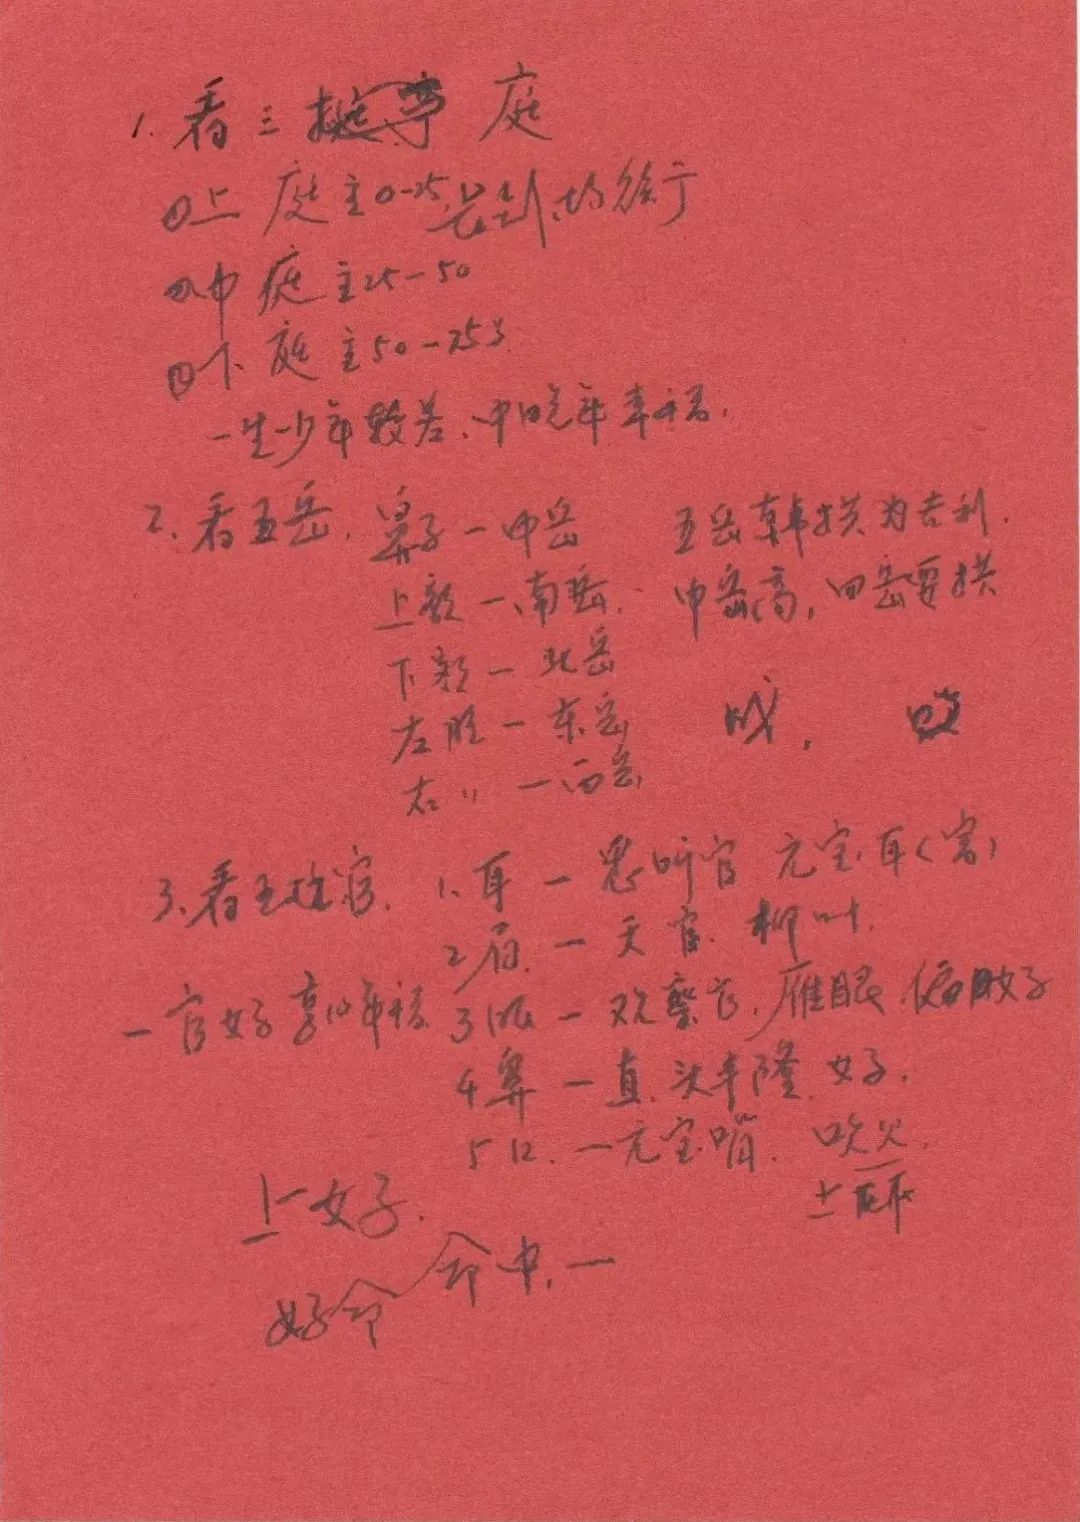 1. 看三庭
(1)上庭主0-25
(2)中庭主25-50
(3)下庭主50-75岁
一生少年较苦、中晚年幸福.
2. 看五岳. 鼻子—中岳 五岳朝拱为吉利.
上额—南岳. 中岳高,四岳要拱
下额—北岳
左脸—东岳
右〃—西岳
3. 看五官. 1. 耳—听官 元宝耳(富)
2 眉.—天官. 柳叶.
一官好享10年福 3 眼—观察官, 雁眼
4 鼻—直.头丰隆. 好.
5 口.—元宝嘴. 吹火.
上一好.
好命 命中.一